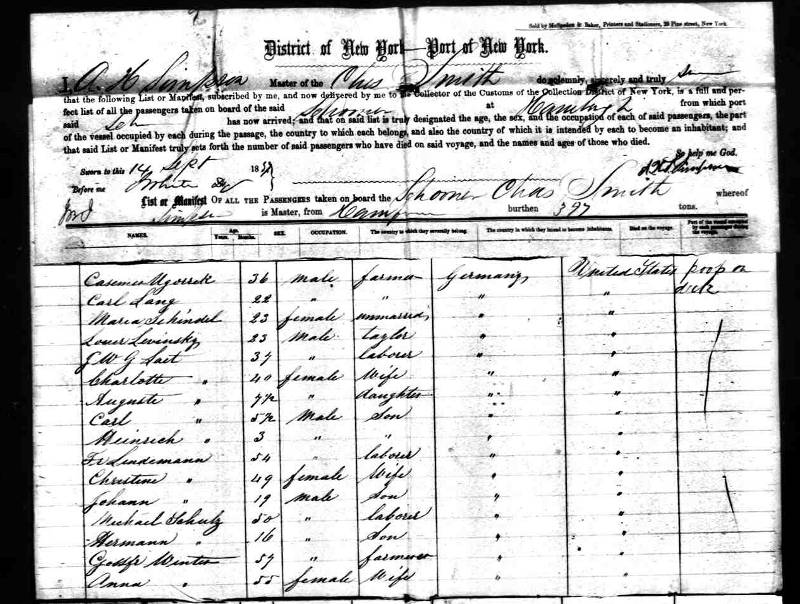 Sold by McSpedon & Baker, Printers and Stationers, 29 Pine street, New York
District of New York—Port of New York.
I, A H Simpson Master of the Chas Smith do solemnly, sincerely and truly
that the following List or Manifest, subscribed by me, and now delivered by me to the Collector of the Customs of the Collection District of New York, is a full and per-
fect list of all the passengers taken on board of the said Schooner at Hamburg from which port
said Sch has now arrived; and that on said list is truly designated the age, the sex, and the occupation of each of said passengers, the part
of the vessel occupied by each during the passage, the country to which each belongs, and also the country of which it is intended by each to become an inhabitant; and
that said List or Manifest truly sets forth the number of said passengers who have died on said voyage, and the names and ages of those who died.
So help me God.
Sworn to this 14 Sept 185
Before me White
List or Manifest OF ALL THE PASSENGERS taken on board the Schooner Chas Smith whereof
Simpson is Master, from burthen 397 tons.
NAMES. Age. Years. Months. SEX. OCCUPATION. The country to which they severally belong. The country to which they intend to become inhabitants. Died on the voyage. Part of the vessel occupied by each passenger during the voyage.
36 male farmer Germany United States poop on
Carl Lang 22 " " " " deck
Maria Schindel 23 female unmarried " "
Levinsky 23 Male taylor " "
J W G 37 " laborer " "
Charlotte " 40 female Wife " "
Auguste " 7½ " daughter " "
Carl " 5½ Male Son " "
Heinrich " 3 " " " "
Fr Lindemann 54 " laborer " "
Christine " 49 female Wife " "
Johann " 19 male son " "
Michael Schulz 50 " laborer " "
Hermann " 16 " son " "
Gottfr Winter 57 " farmer " "
Anna " 55 female Wife " "